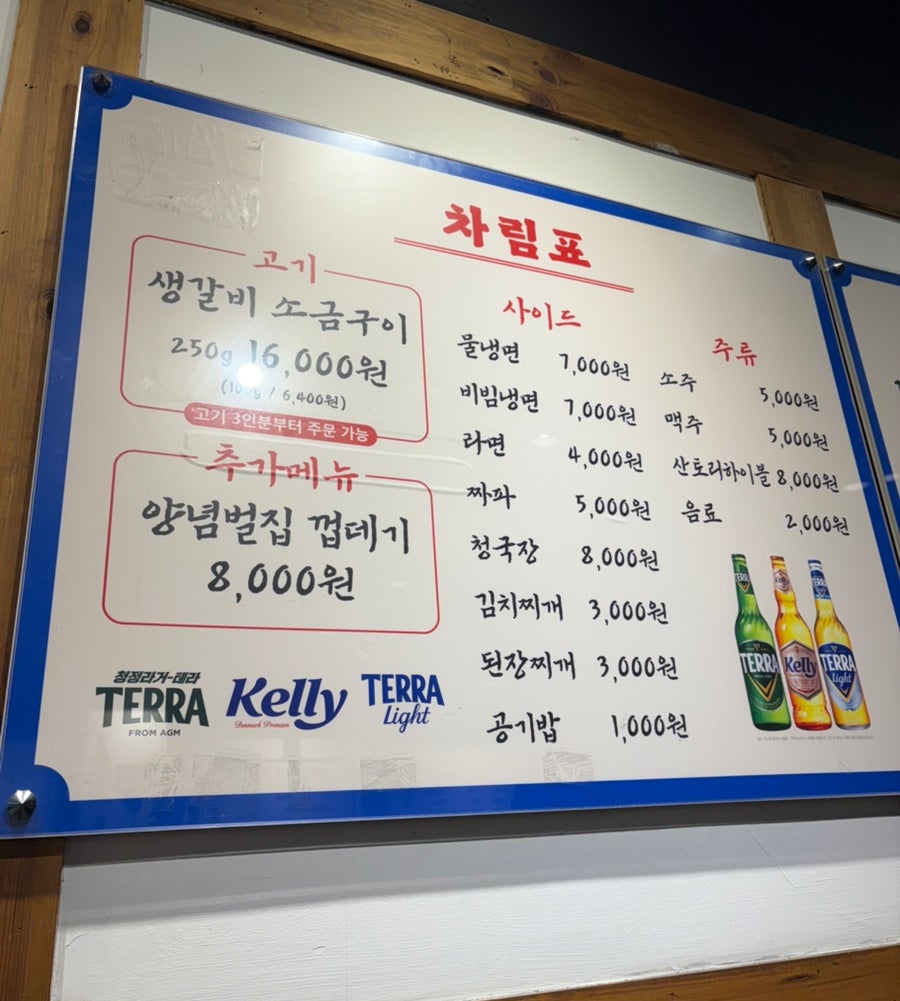 차림표
고기
생갈비 소금구이
250g 16,000원
(100g / 6,400원)
고기 3인분부터 주문 가능
추가메뉴
양념벌집 껍데기
8,000원
청정라거-테라
TERRA
FROM AGM
Kelly
Denmark Premium
TERRA
Light
사이드
물냉면 7,000원
비빔냉면 7,000원
라면 4,000원
짜파 5,000원
청국장 8,000원
김치찌개 3,000원
된장찌개 3,000원
공기밥 1,000원
주류
소주 5,000원
맥주 5,000원
산토리하이볼 8,000원
음료 2,000원
TERRA
Kelly
TERRA
Light